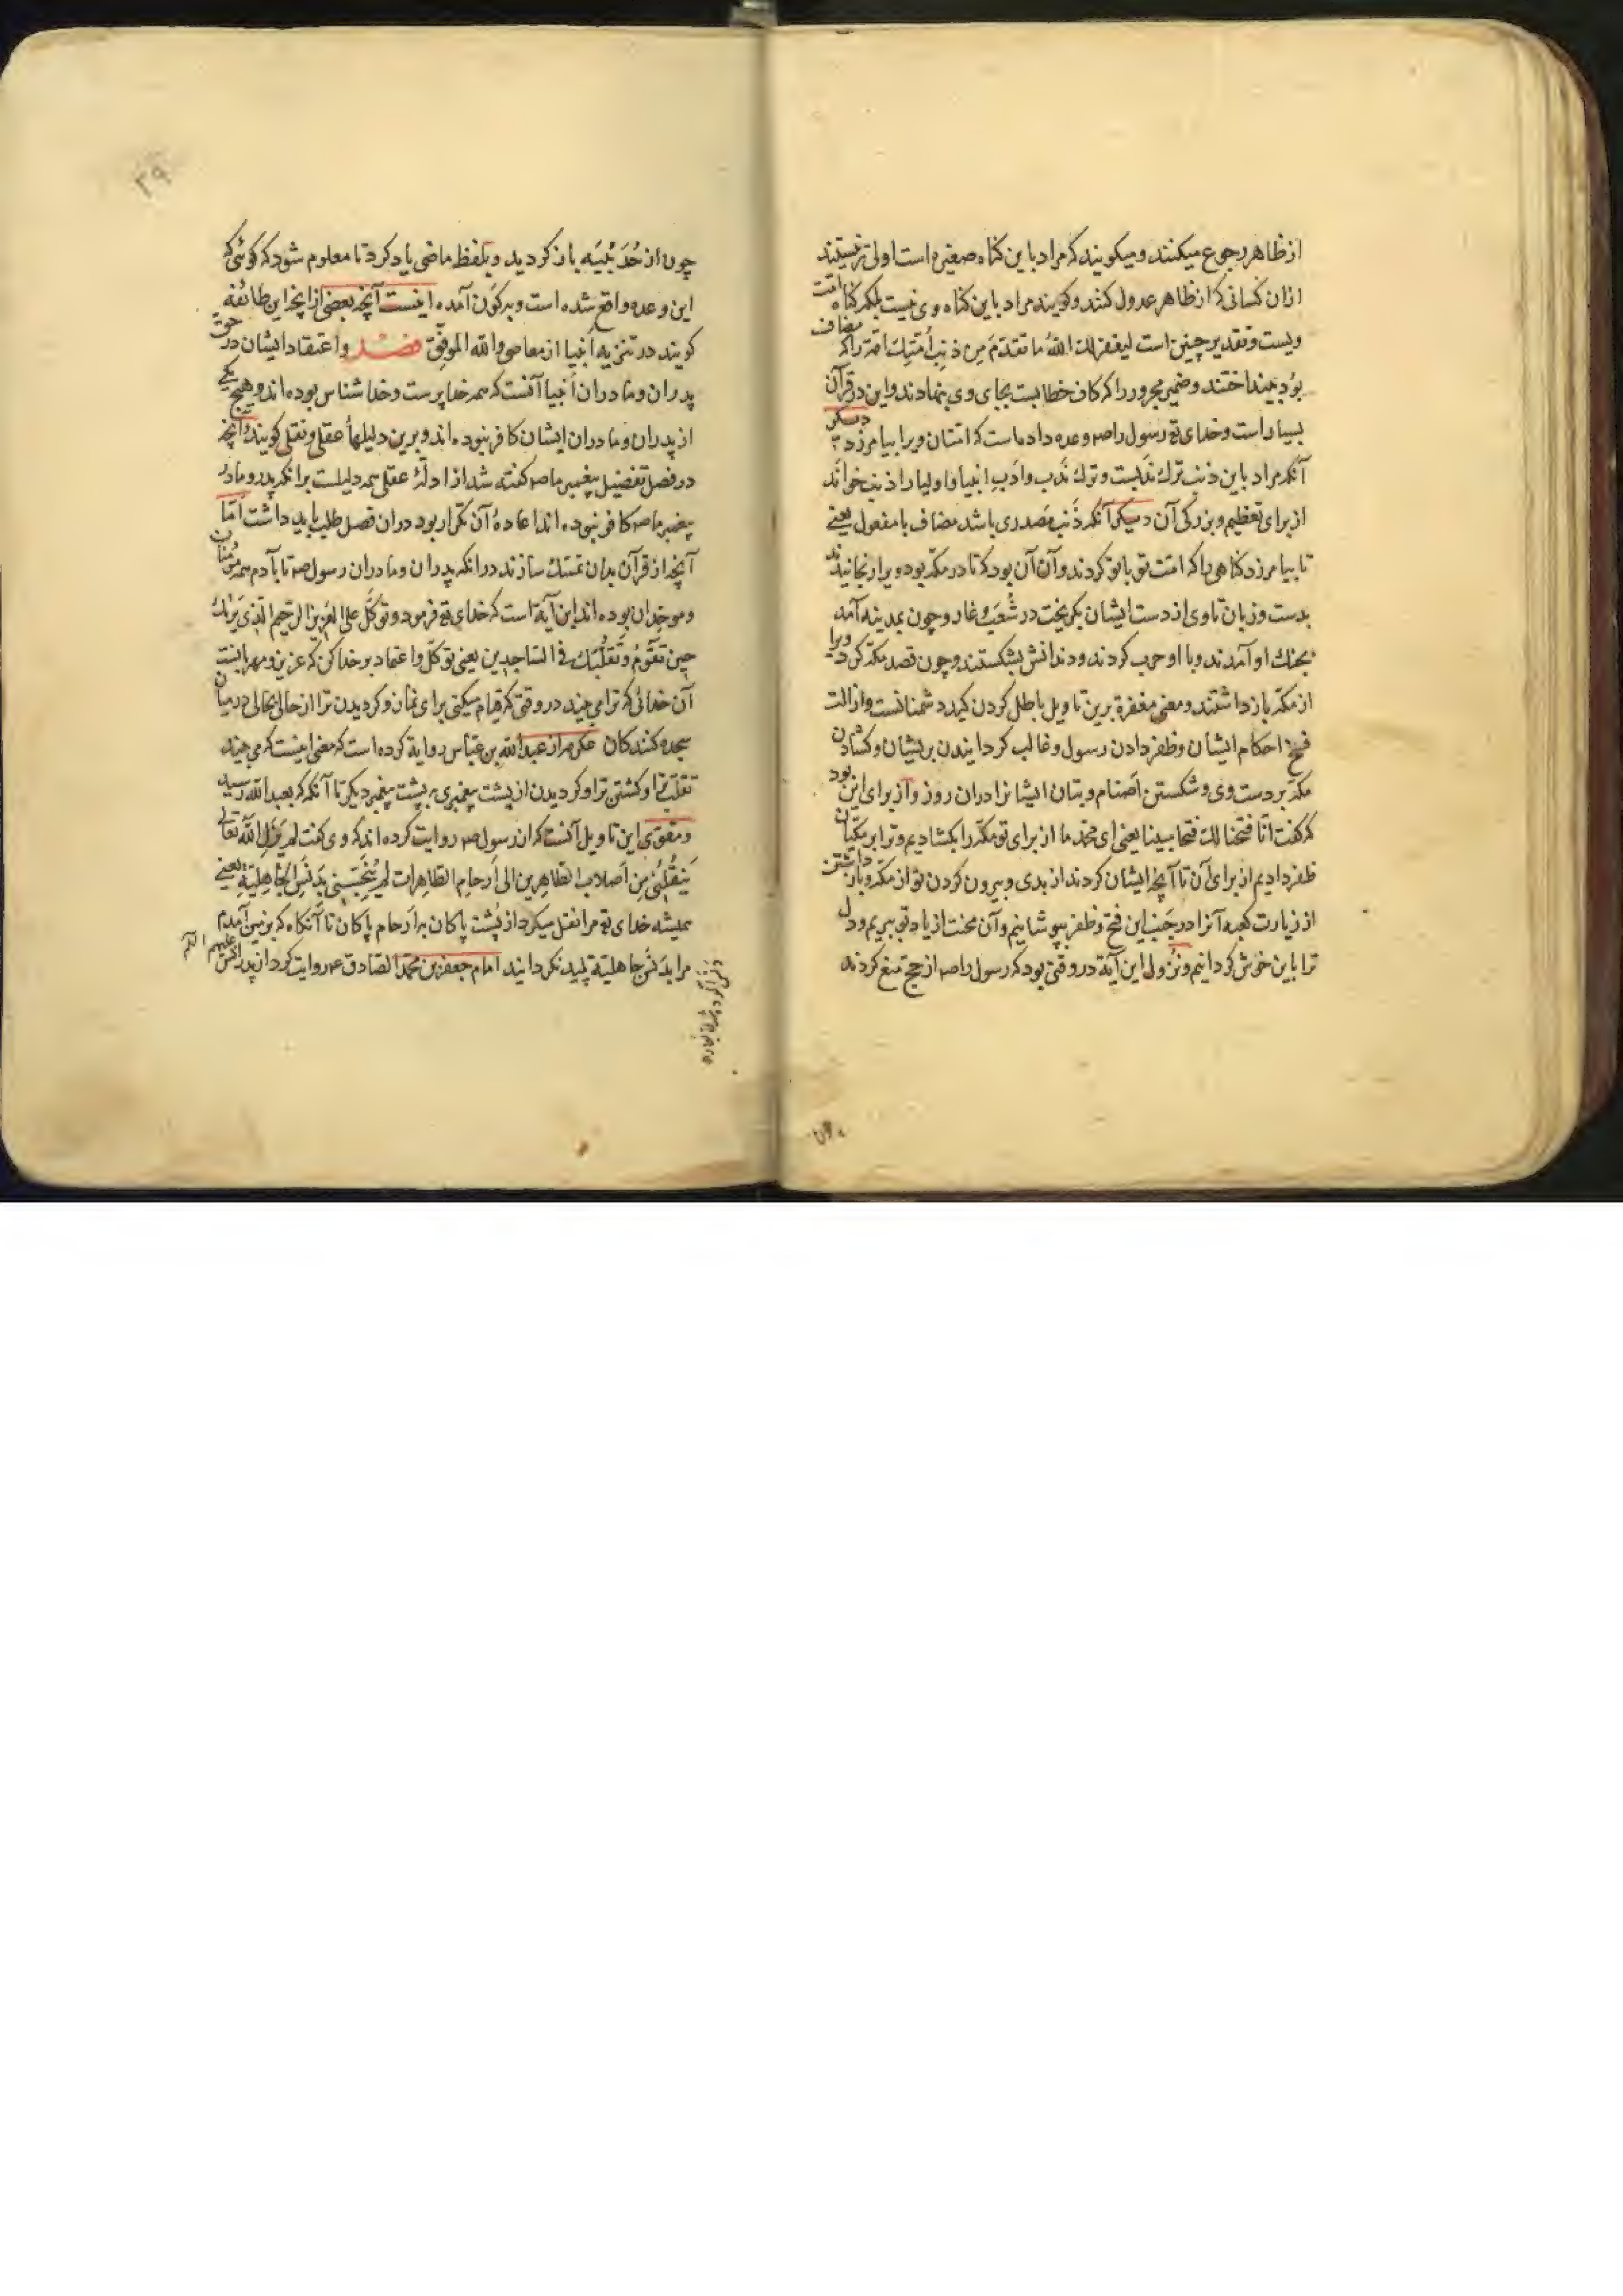 از ظاهر رجوع میکنند و میکویند که مراد باین کناه صغیره است اولی تر نیستند
ازان کسانی که از ظاهر عدول کنند و کویند مراد باین کناه وی نیست بلکه کناه امت
ویست و تقدیر چنین است لیغفر لك الله ما تقدم من ذنب أمتك امة را که مضاف
بود بینداختند و ضمیر مجرور را که کاف خطابست بجای وی بنهادند و این در قرآن
بسیار است و خدای تع رسول را صه وعده داده است که امتان ویرا بیامرزد دیکر
آنکه مراد باین ذنب ترك ندبست و ترك ندب و ادب انبیا و اولیا را ذنب خوانند
از برای تعظیم و بزرکی آن دیکر آنکه ذنب مصدری باشد مضاف با مفعول یعنی
تا بیامرزد کناهی را که امت تو با تو کردند و آن آن بود که تا در مکه بود ویرا رنجانیدند
بدست و زبان تا وی از دست ایشان بکریخت در شعب و غار و چون بمدینه آمد
بجنك او آمدند و با او حرب کردند و دندانش بشکستند و چون قصد مکه کرد ویرا
از مکه باز داشتند و معنی مغفرة برین تاویل باطل کردن کید دشمنانست و ازالت
فسخ احکام ایشان و ظفر دادن رسول و غالب کردانیدن بریشان و کشادن
مکه بر دست وی و شکستن اصنام و بتان ایشانرا دران روز و از برای این بود
که کفت انا فتحنا لك فتحا مبینا یعنی ای محمد ما از برای تو مکه را بکشادیم و ترا بر مکیان
ظفر دادیم از برای آن تا آنچه ایشان کردند از بدی و بیرون کردن تو از مکه و باز داشتن
از زیارت کعبه آنرا در جنب این فتح و ظفر بپوشانیم و آن محنت از یاد تو ببریم و دل
ترا باین خوش کردانیم و نزول این آیة در وقتی بود که رسول را صه از حج منع کردند
۳۹
چون از حدیبیه باز کردید و بلفظ ماضی یاد کرد تا معلوم شود که کوئی که
این وعده واقع شده است و بر کون آمده اینست آنچه بعضی از انچه این طائفه
کویند در تنزیه انبیا از معاصی والله الموفق فصل و اعتقاد ایشان در حق
پدران و مادران انبیا آنست که همه خدا پرست و خدا شناس بوده اند و هیچ یکی
از پدران و مادران ایشان کافر نبوده اند و برین دلیلهاء عقلی و نقلی کویند و آنچه
در فصل تفضیل پیغمبر ما صه کفته شد از ادلّۀ عقلی همه دلیلست بر انکه پدر و مادر
پیغمبر ما صه کافر نبوده اند اعادۀ آن تکرار بود دران فصل طلب باید داشت امّا
آنچه از قرآن بدان تمسك سازند در انکه پدران و مادران رسول صه تا بآدم همه مؤمنان
و موحدان بوده اند این آیة است که خدای تع فرمود و توکّل علی العزیز الرحیم الذی یراك
حین تقوم و تقلّبك فی الساجدین یعنی توکّل و اعتماد بر خدا کن که عزیز و مهربانست
آن خدائی که ترا می بیند در وقتی که قیام میکنی برای نماز و کردیدن ترا از حالی بحالی در میان
سجده کنندکان عکرمه از عبدالله بن عباس روایة کرده است که معنی اینست که می بیند
تقلب ترا و کشتن ترا و کردیدن از پشت پیغمبری به پشت پیغمبر دیکر تا آنکه که بعبدالله رسید
و مقوّی این تاویل آنست که از رسول صه روایت کرده اند که وی کفت لم یزل الله تعالی
ینقلنی من اصلاب الطاهرین الی ارحام الطاهرات لم ینجسنی بدنس الجاهلیة یعنی
همیشه خدای تع مرا نقل میکرد از پشت پاکان به ارحام پاکان تا آنکاه که بزمین آمدم
مرا بدنس جاهلیة پلید نکردانید امام جعفر بن محمد الصادق عه روایت کرد از پدرانش علیهم السّلم